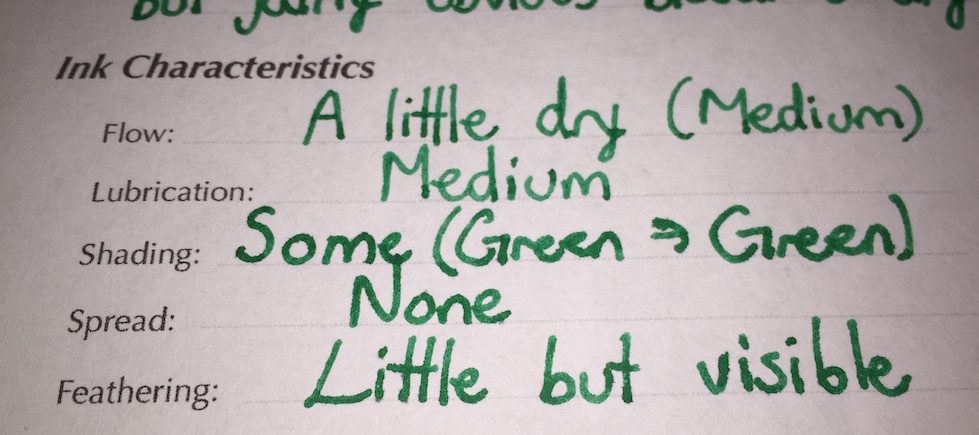 but
Ink Characteristics
Flow: A little dry (Medium)
Lubrication: Medium
Shading: Some (Green → Green)
Spread: None
Feathering: Little but visible